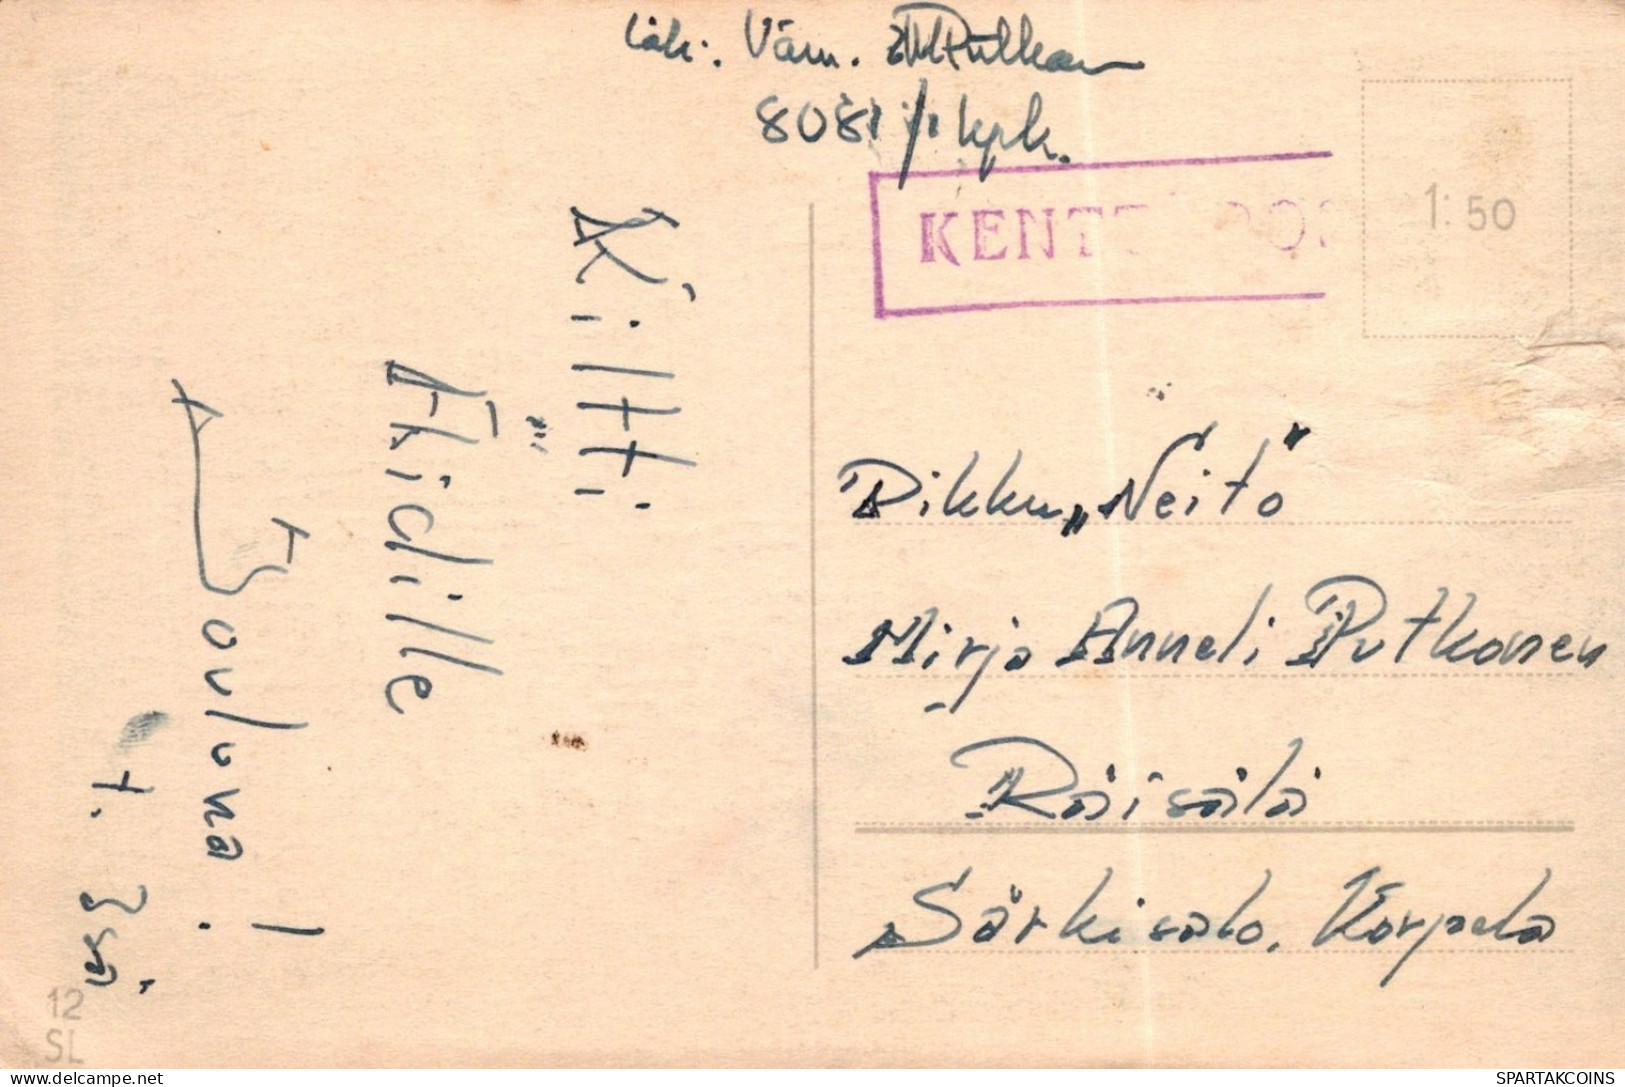 Läh. Väm. M Putkonen
8081 / 1 kpk.
KENTTÄPOS
1:50
Kiltti
Äidille
Jouluna!
t. Isä.
Pikku „Neito"
Mirja Anneli Putkonen
Räisälä
Särkisalo, Korpela
12
SL
delcampe.net
SPARTAKCOINS